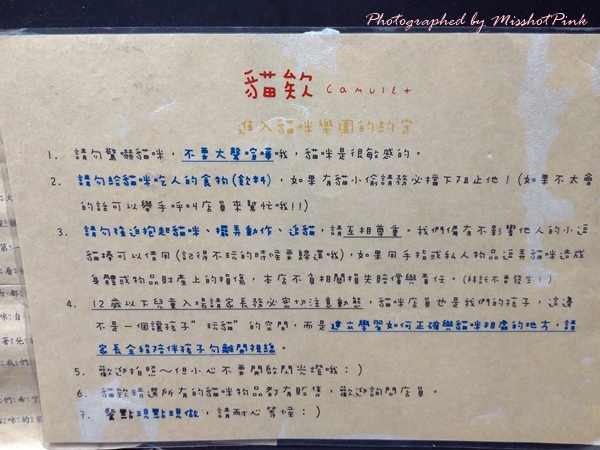 Photographed by MisshotPink
貓欸 Camulet
進入貓咪樂園的約定
1. 請勿驚嚇貓咪，不要大聲喧嘩哦，貓咪是很敏感的。
2. 請勿給貓咪吃人的食物(飲料)，如果有貓小偷請務必擋下阻止他！(如果不太會
的話可以舉手呼叫店員來幫忙哦!!)
3. 請勿強迫抱起貓咪、擺弄動作、追貓，請互相尊重。我們備有不影響他人的小逗
貓棒可以借用(記得不玩的時候要歸還哦)，如果用手指或私人物品逗弄貓咪造成
身體或物品財產上的損傷，本店不負相關損失賠償與責任。(拜託不要發生！)
4. 12歲以下兒童入場請家長務必密切注意動態，貓咪店員也是我們的孩子，這邊
不是一個讓孩子"玩貓"的空間，而是建立學習如何正確與貓咪相處的地方，請
家長全程陪伴孩子勿離開視線。
5. 歡迎拍照～但小心不要開啟閃光燈哦：)
6. 貓欸精選所有的貓咪物品都有販售，歡迎詢問店員。
7. 餐點現點現做，請耐心等候：)